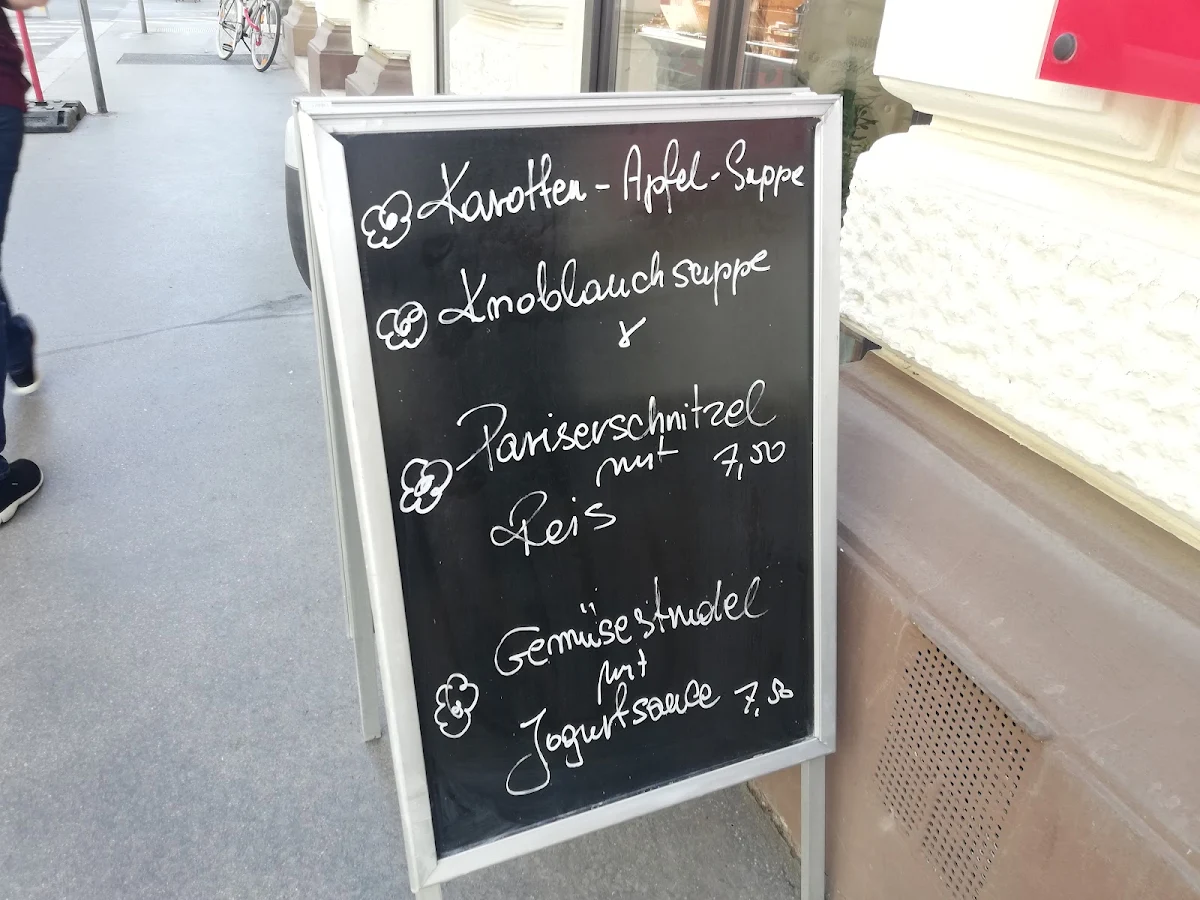 Karotten-Apfel-Suppe
Knoblauchsuppe
Pariserschnitzel
mit 7,50
Reis
Gemüsestrudel
mit
Jogurtsauce 7,50